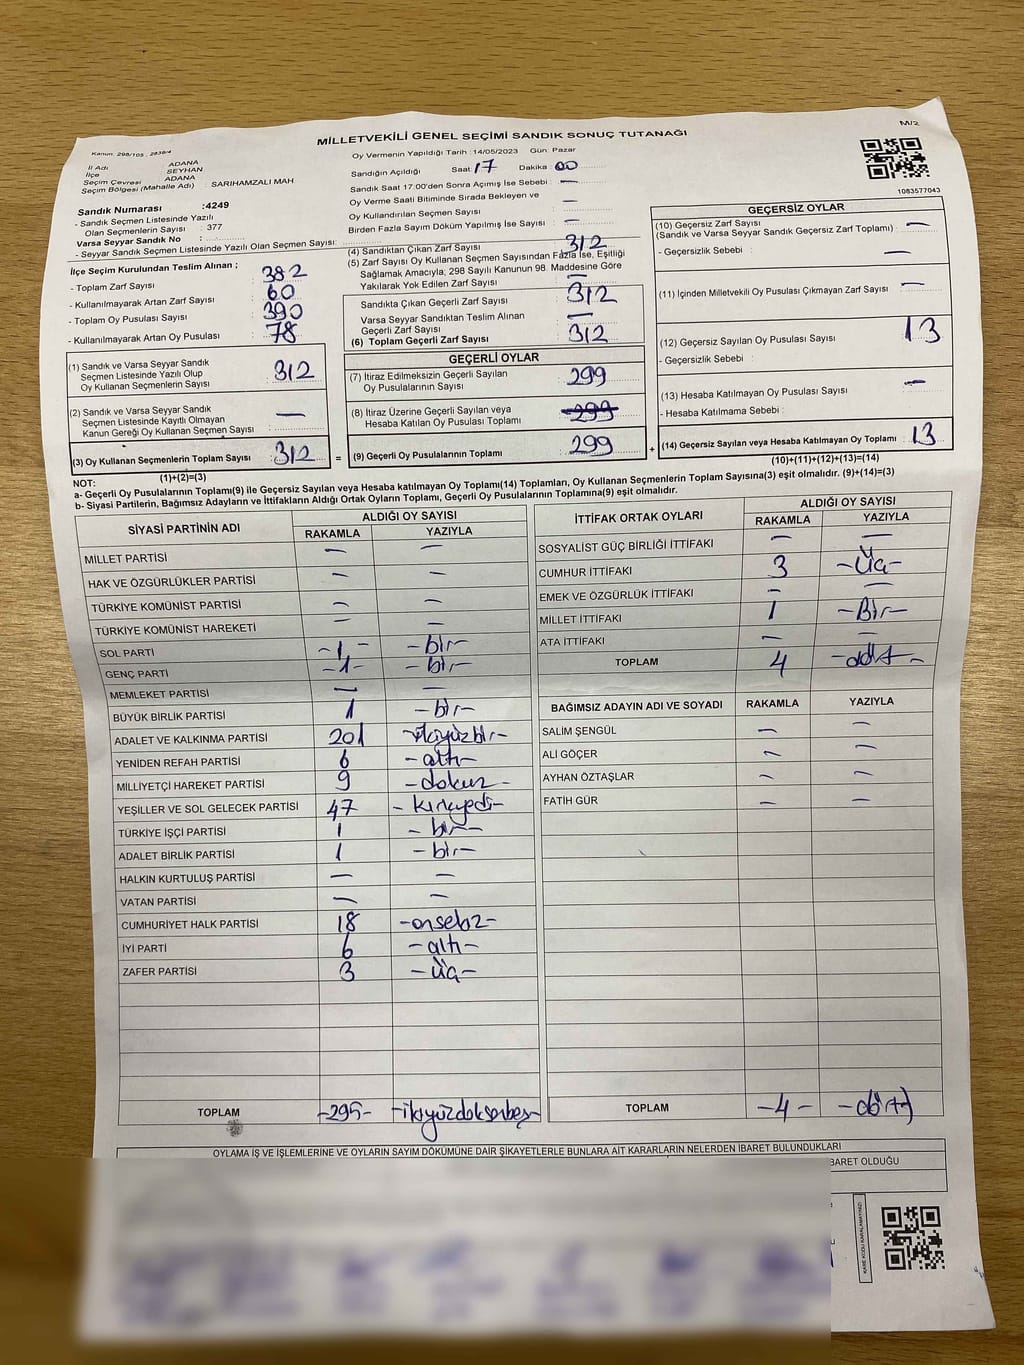 M/2
MİLLETVEKİLİ GENEL SEÇİMİ SANDIK SONUÇ TUTANAĞI
Kanun: 298/105, 2839/4
Oy Vermenin Yapıldığı Tarih : 14/05/2023 Gün: Pazar
İl Adı ADANA
İlçe SEYHAN
Seçim Çevresi ADANA
Seçim Bölgesi (Mahalle Adı) : SARIHAMZALI MAH
Sandığın Açıldığı Saat: 17 Dakika : 00
Sandık Saat 17:00'den Sonra Açımış İse Sebebi : —
Oy Verme Saati Bitiminde Sırada Bekleyen ve
Oy Kullandırılan Seçmen Sayısı : —
Birden Fazla Sayım Döküm Yapılmış İse Sayısı : —
1083577043
Sandık Numarası :4249
- Sandık Seçmen Listesinde Yazılı
Olan Seçmenlerin Sayısı : 377
Varsa Seyyar Sandık No :
- Seyyar Sandık Seçmen Listesinde Yazılı Olan Seçmen Sayısı:
İlçe Seçim Kurulundan Teslim Alınan ;
- Toplam Zarf Sayısı : 382
- Kullanılmayarak Artan Zarf Sayısı : 60
- Toplam Oy Pusulası Sayısı : 390
- Kullanılmayarak Artan Oy Pusulası : 78
(1) Sandık ve Varsa Seyyar Sandık
Seçmen Listesinde Yazılı Olup
Oy Kullanan Seçmenlerin Sayısı : 312
(2) Sandık ve Varsa Seyyar Sandık
Seçmen Listesinde Kayıtlı Olmayan
Kanun Gereği Oy Kullanan Seçmen Sayısı : —
(3) Oy Kullanan Seçmenlerin Toplam Sayısı : 312
(1)+(2)=(3)
(4) Sandıktan Çıkan Zarf Sayısı : 312
(5) Zarf Sayısı Oy Kullanan Seçmen Sayısından Fazla İse, Eşitliği
Sağlamak Amacıyla; 298 Sayılı Kanunun 98. Maddesine Göre
Yakılarak Yok Edilen Zarf Sayısı : —
Sandıkta Çıkan Geçerli Zarf Sayısı : 312
Varsa Seyyar Sandıktan Teslim Alınan
Geçerli Zarf Sayısı : —
(6) Toplam Geçerli Zarf Sayısı : 312
GEÇERLİ OYLAR
(7) İtiraz Edilmeksizin Geçerli Sayılan
Oy Pusulalarının Sayısı : 299
(8) İtiraz Üzerine Geçerli Sayılan veya
Hesaba Katılan Oy Pusulası Toplamı : 299
= (9) Geçerli Oy Pusulalarının Toplamı : 299
GEÇERSİZ OYLAR
(10) Geçersiz Zarf Sayısı : —
(Sandık ve Varsa Seyyar Sandık Geçersiz Zarf Toplamı)
- Geçersizlik Sebebi : —
(11) İçinden Milletvekili Oy Pusulası Çıkmayan Zarf Sayısı : —
(12) Geçersiz Sayılan Oy Pusulası Sayısı : 13
- Geçersizlik Sebebi :
(13) Hesaba Katılmayan Oy Pusulası Sayısı : —
- Hesaba Katılmama Sebebi :
+ (14) Geçersiz Sayılan veya Hesaba Katılmayan Oy Toplamı : 13
(10)+(11)+(12)+(13)=(14)
NOT:
a- Geçerli Oy Pusulalarının Toplamı(9) ile Geçersiz Sayılan veya Hesaba katılmayan Oy Toplamı(14) Toplamları, Oy Kullanan Seçmenlerin Toplam Sayısına(3) eşit olmalıdır. (9)+(14)=(3)
b- Siyasi Partilerin, Bağımsız Adayların ve İttifakların Aldığı Ortak Oyların Toplamı, Geçerli Oy Pusulalarının Toplamına(9) eşit olmalıdır.
SİYASİ PARTİNİN ADI ALDIĞI OY SAYISI
RAKAMLA YAZIYLA
MİLLET PARTİSİ — —
HAK VE ÖZGÜRLÜKLER PARTİSİ — —
TÜRKİYE KOMÜNİST PARTİSİ — —
TÜRKİYE KOMÜNİST HAREKETİ — —
SOL PARTİ -1- -bir-
GENÇ PARTİ -1- -bir-
MEMLEKET PARTİSİ — —
BÜYÜK BİRLİK PARTİSİ 1 -bir-
ADALET VE KALKINMA PARTİSİ 201 -ikiyüzbir-
YENİDEN REFAH PARTİSİ 6 -altı-
MİLLİYETÇİ HAREKET PARTİSİ 9 -dokuz-
YEŞİLLER VE SOL GELECEK PARTİSİ 47 -kırkyedi-
TÜRKİYE İŞÇİ PARTİSİ 1 -bir-
ADALET BİRLİK PARTİSİ 1 -bir-
HALKIN KURTULUŞ PARTİSİ — —
VATAN PARTİSİ — —
CUMHURİYET HALK PARTİSİ 18 -onsekiz-
İYİ PARTİ 6 -altı-
ZAFER PARTİSİ 3 -üç-
TOPLAM -295- -ikiyüzdoksanbeş-
İTTİFAK ORTAK OYLARI ALDIĞI OY SAYISI
RAKAMLA YAZIYLA
SOSYALİST GÜÇ BİRLİĞİ İTTİFAKI — —
CUMHUR İTTİFAKI 3 -Üç-
EMEK VE ÖZGÜRLÜK İTTİFAKI — —
MİLLET İTTİFAKI 1 -Bir-
ATA İTTİFAKI — —
TOPLAM 4 -dört-
BAĞIMSIZ ADAYIN ADI VE SOYADI RAKAMLA YAZIYLA
SALİM ŞENGÜL — —
ALİ GÖÇER — —
AYHAN ÖZTAŞLAR — —
FATİH GÜR — —
TOPLAM -4- -dört-
OYLAMA İŞ VE İŞLEMLERİNE VE OYLARIN SAYIM DÖKÜMÜNE DAİR ŞİKAYETLERLE BUNLARA AİT KARARLARIN NELERDEN İBARET BULUNDUKLARI
BARET OLDUĞU
KARE KODU KARALAMAYINIZ!